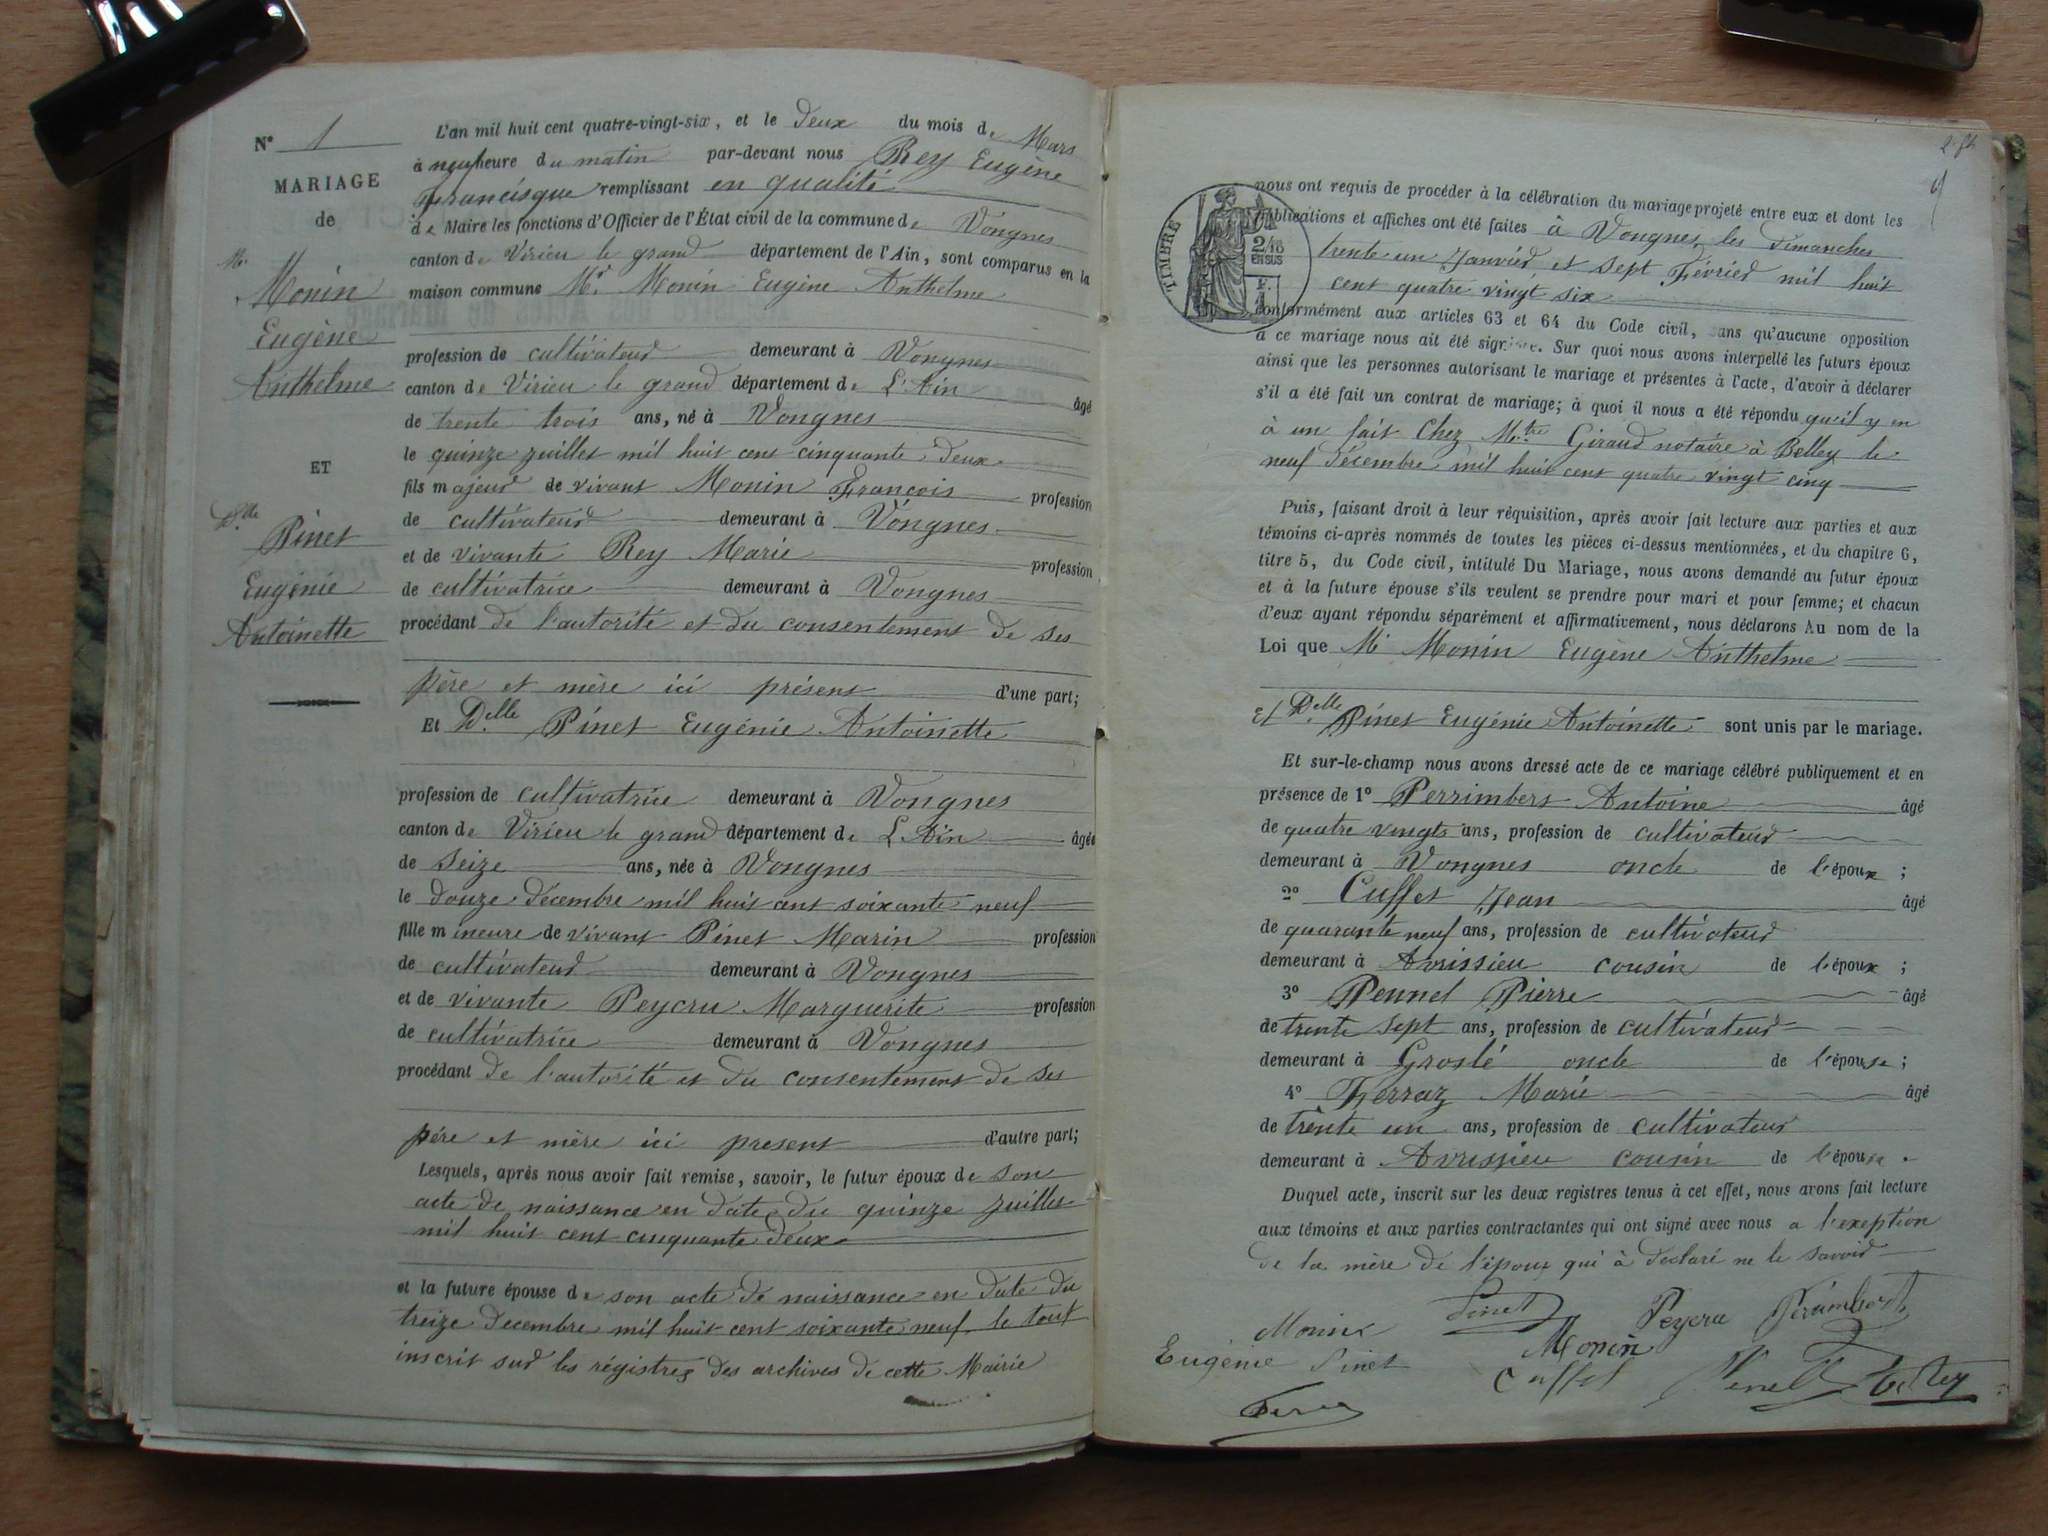 N° 1
MARIAGE
de
Mr.
Monin
Eugène
Anthelme
ET
Delle
Pinet
Eugénie
Antoinette
L'an mil huit cent quatre-vingt-six, et le deux du mois de Mars
à neuf heure du matin par-devant nous Rey Eugène
Francisque remplissant en qualité
de Maire les fonctions d'Officier de l'État civil de la commune de Vongnes
canton de Virieu le grand département de l'Ain, sont comparus en la
maison commune Mr. Monin Eugène Anthelme
profession de cultivateur demeurant à Vongnes
canton de Virieu le grand département de L'Ain âgé
de trente trois ans, né à Vongnes
le quinze juillet mil huit cent cinquante deux
fils majeur de vivant Monin François profession
de cultivateur demeurant à Vongnes
et de vivante Rey Marie profession
de cultivatrice demeurant à Vongnes
procédant de l'autorité et du consentement de ses
père et mère ici présent d'une part;
Et Delle Pinet Eugénie Antoinette
profession de cultivatrice demeurant à Vongnes
canton de Virieu le grand département de L'Ain âgée
de seize ans, née à Vongnes
le douze décembre mil huit cent soixante neuf
fille mineure de vivant Pinet Marin profession
de cultivateur demeurant à Vongnes
et de vivante Peycru Marguerite profession
de cultivatrice demeurant à Vongnes
procédant de l'autorité et du consentement de ses
père et mère ici present d'autre part;
Lesquels, après nous avoir fait remise, savoir, le futur époux de son
acte de naissance en date du quinze juillet
mil huit cent cinquante deux
et la future épouse de son acte de naissance en date du
treize decembre mil huit cent soixante neuf le tout
inscrit sur les régistres des archives de cette Mairie
TIMBRE
2/10
EN SUS
nous ont requis de procéder à la célébration du mariage projeté entre eux et dont les
publications et affiches ont été faites à Vongnes, les dimanches
trente un Janvier et sept Février mil huit
cent quatre vingt six
conformément aux articles 63 et 64 du Code civil, sans qu'aucune opposition
à ce mariage nous ait été signifiée. Sur quoi nous avons interpellé les futurs époux
ainsi que les personnes autorisant le mariage et présentes à l'acte, d'avoir à déclarer
s'il a été fait un contrat de mariage; à quoi il nous a été répondu qu'il y en
à un fait Chez Mtre Giraud notaire à Belley le
neuf décembre mil huit cent quatre vingt cinq
Puis, faisant droit à leur réquisition, après avoir fait lecture aux parties et aux
témoins ci-après nommés de toutes les pièces ci-dessus mentionnées, et du chapitre 6,
titre 5, du Code civil, intitulé Du Mariage, nous avons demandé au futur époux
et à la future épouse s'ils veulent se prendre pour mari et pour femme; et chacun
d'eux ayant répondu séparément et affirmativement, nous déclarons Au nom de la
Loi que Mr Monin Eugène Anthelme
Et Delle Pinet Eugénie Antoinette sont unis par le mariage.
Et sur-le-champ nous avons dressé acte de ce mariage célébré publiquement et en
présence de 1° Perrimbert Antoine âgé
de quatre vingts ans, profession de cultivateur
demeurant à Vongnes oncle de l'époux;
2° Cuffet Jean âgé
de quarante neuf ans, profession de cultivateur
demeurant à Avrissieu cousin de l'époux;
3° Pennel Pierre âgé
de trente sept ans, profession de cultivateur
demeurant à Groslé oncle de l'épouse;
4° Ferraz Marie âgé
de trente un ans, profession de cultivateur
demeurant à Avrissieu cousin de l'épouse.
Duquel acte, inscrit sur les deux registres tenus à cet effet, nous avons fait lecture
aux témoins et aux parties contractantes qui ont signé avec nous a l'exeption
de la mère de l'époux qui à declaré ne le savoir
Monin Pinet Peycru Perimbert
Eugénie Pinet Monin
Cuffet Penel